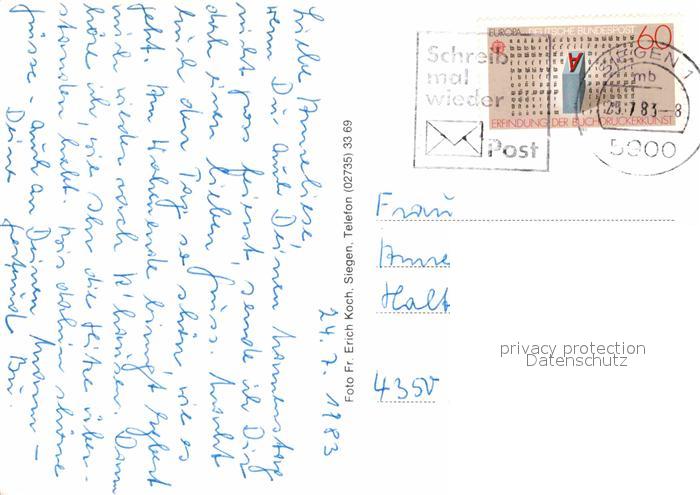 24.7.1983
Liebe Anneliese,
wenn Du auch Deinen Namenstag
nicht gross feierst, sende ich Dir
doch einen lieben Gruss. Macht
Euch den Tag so schön, wie es
geht. Am Wochenende bringt
mich wieder nach Dann
höre ich, wie Ihr die Hitze über-
standen habt. Bis dahin schöne
Grüsse - auch an Deinen Mann -
Deine
Foto Fr. Erich Koch, Siegen, Telefon (02735) 33 69
EUROPA DEUTSCHE BUNDESPOST 60
ERFINDUNG DER BUCHDRUCKERKUNST
Schreib
mal
wieder
Post
SIEGEN 1
mb
7.83-8
5900
Frau
Anne
Halt
4350
privacy protection
Datenschutz